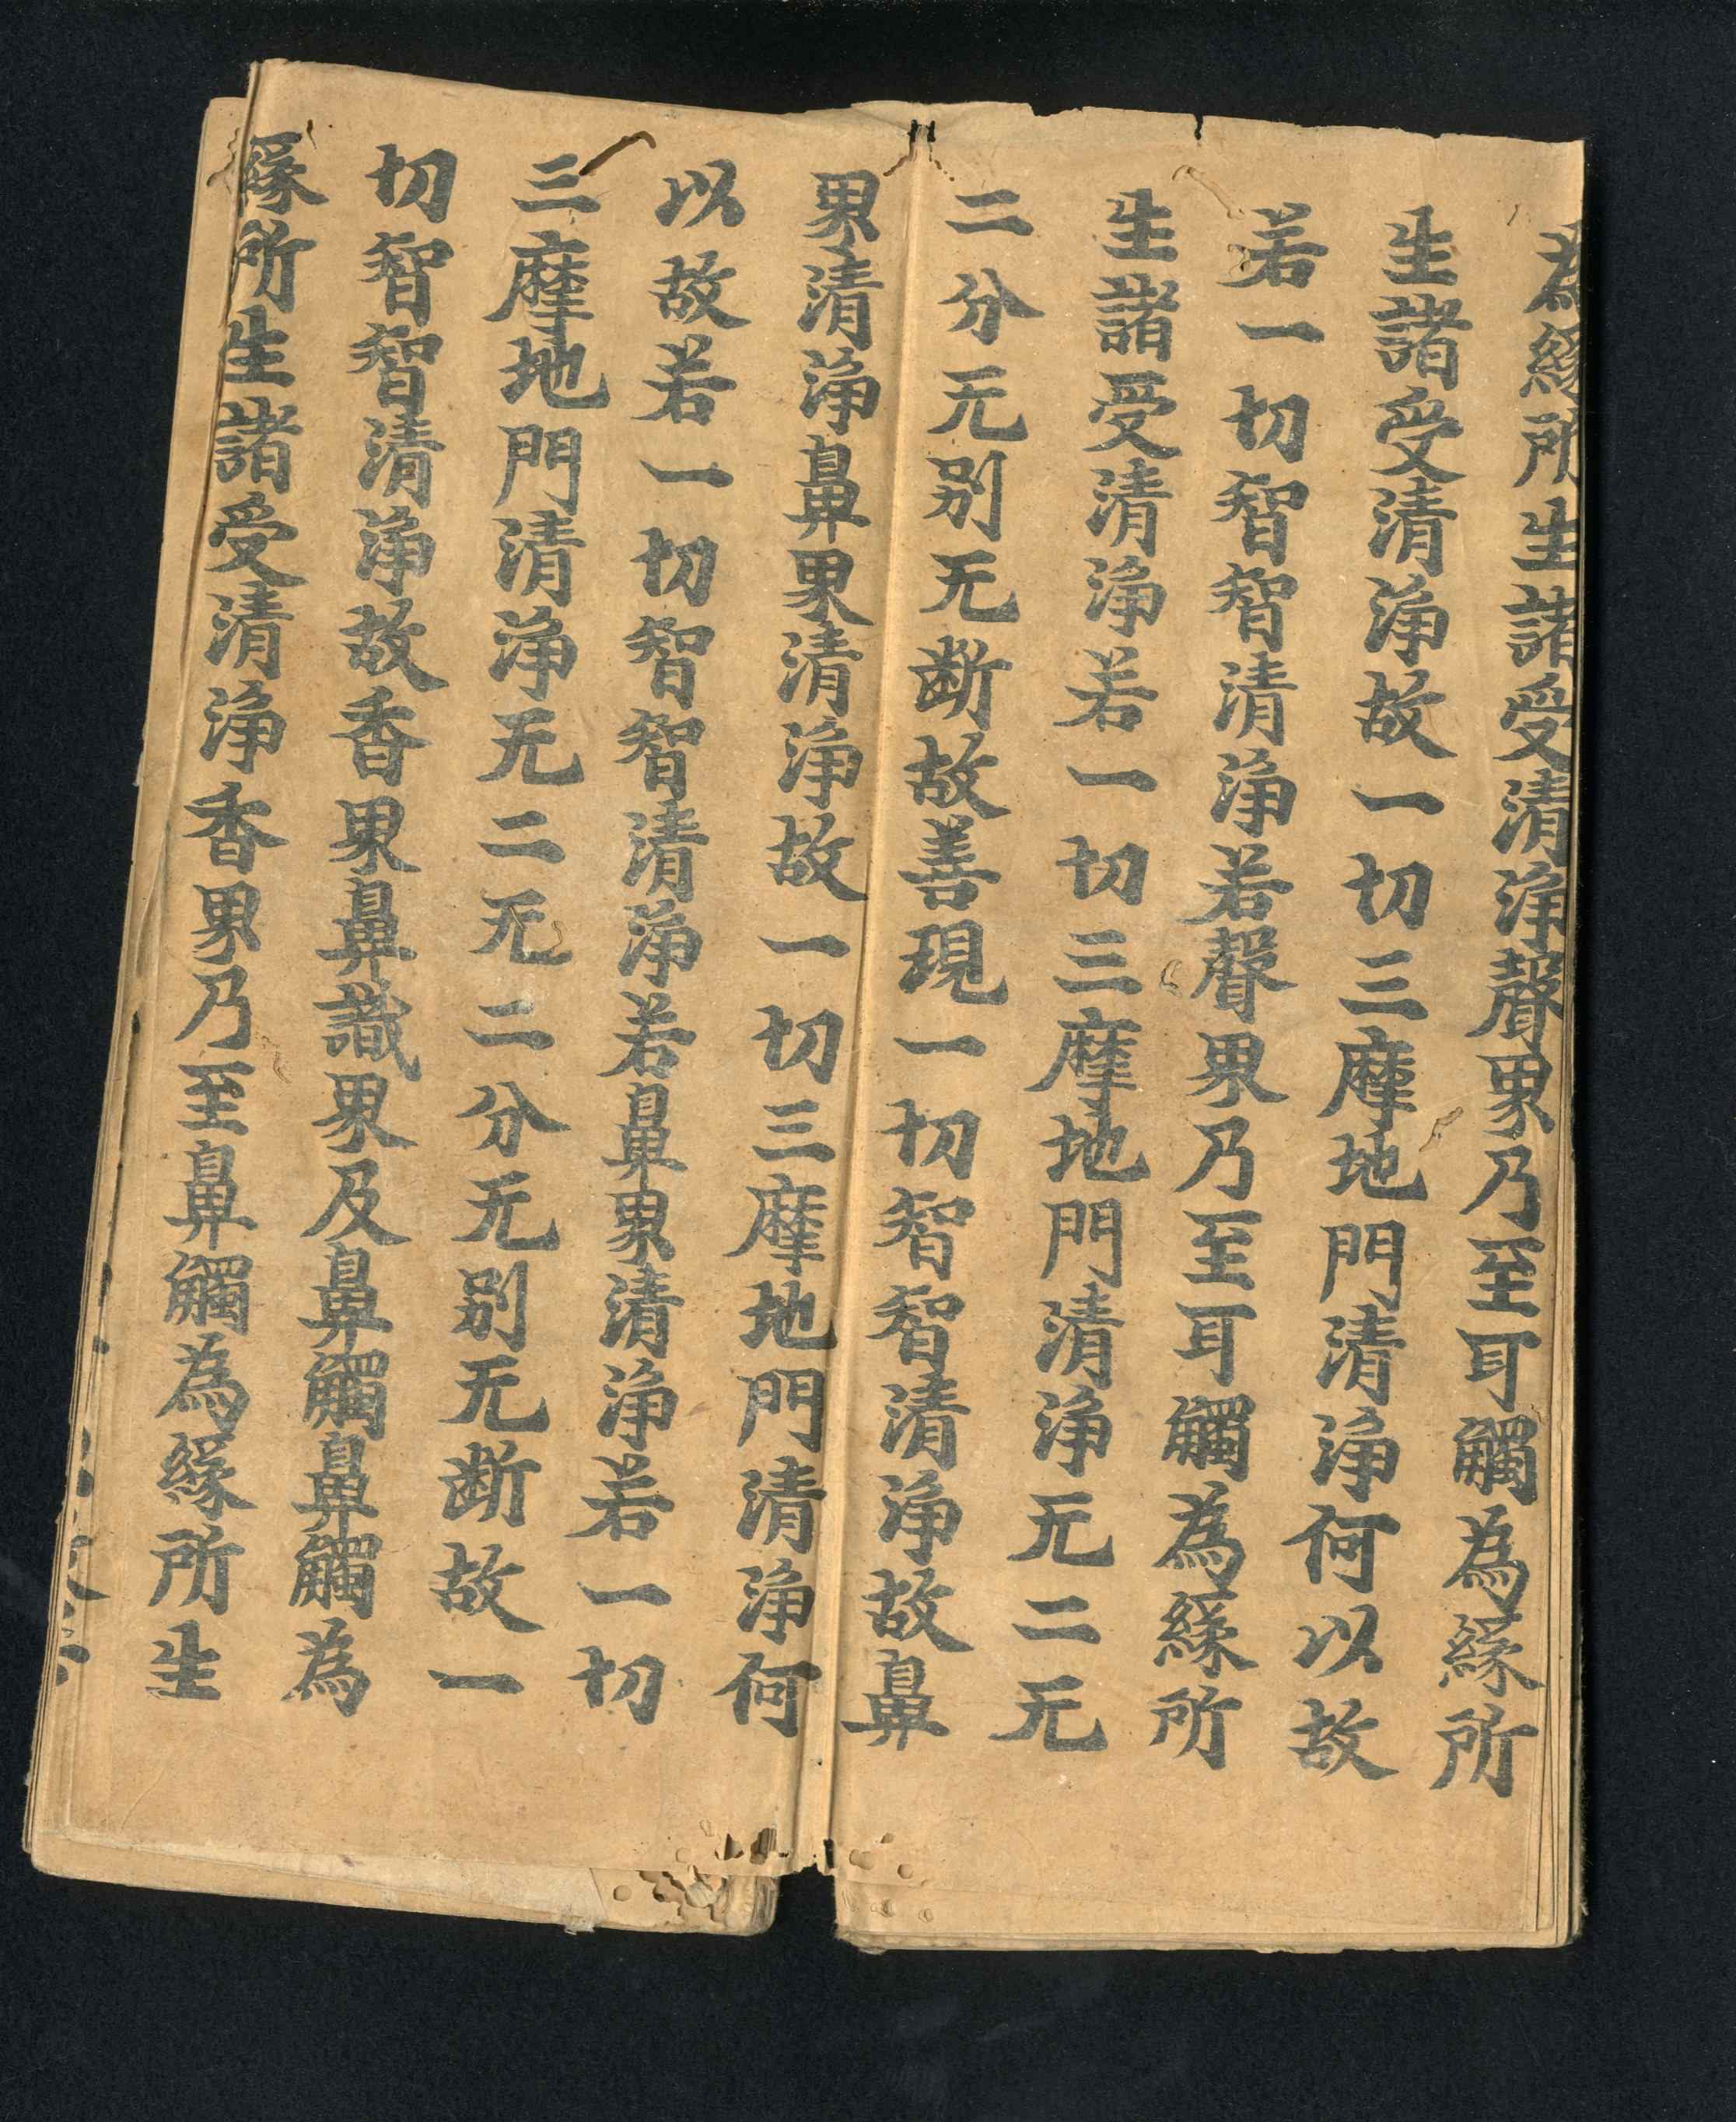 為緣所生諸受清淨聲界乃至耳觸為緣所
生諸受清淨故一切三摩地門清淨何以故
若一切智智清淨若聲界乃至耳觸為緣所
生諸受清淨若一切三摩地門清淨无二无
二分无别无断故善現一切智智清淨故鼻
界清淨鼻界清淨故一切三摩地門清淨何
以故若一切智智清淨若鼻界清淨若一切
三摩地門清淨无二无二分无别无断故一
切智智清淨故香界鼻識界及鼻觸鼻觸為
緣所生諸受清淨香界乃至鼻觸為緣所生